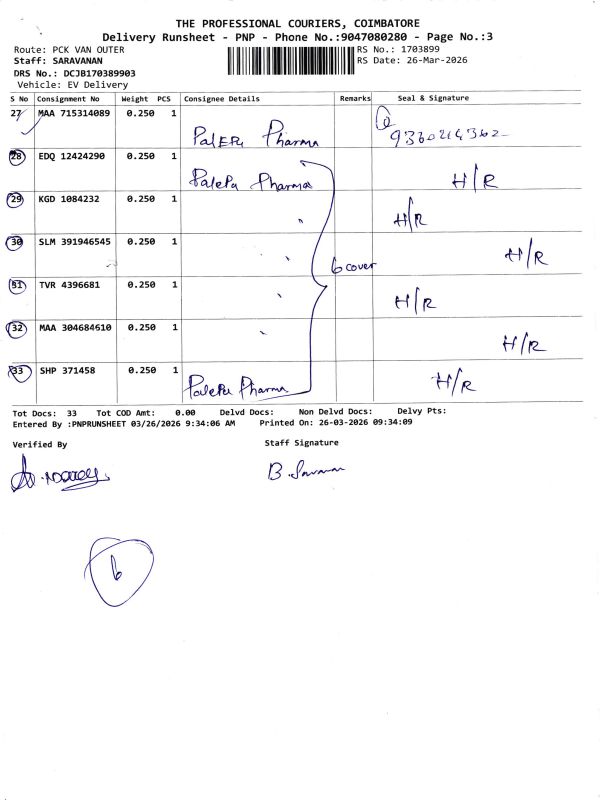 THE PROFESSIONAL COURIERS, COIMBATORE
Delivery Runsheet - PNP - Phone No.:9047080280 - Page No.:3
Route: PCK VAN OUTER RS No.: 1703899
Staff: SARAVANAN RS Date: 26-Mar-2026
DRS No.: DCJB170389903
Vehicle: EV Delivery
S No Consignment No Weight PCS Consignee Details Remarks Seal & Signature
27 MAA 715314089 0.250 1 Paleru Pharma
28 EDQ 12424290 0.250 1 Palepu Pharma H/R
29 KGD 1084232 0.250 1 " H/R
30 SLM 391946545 0.250 1 " H/R
6 cover
31 TVR 4396681 0.250 1 " H/R
32 MAA 304684610 0.250 1 " H/R
33 SHP 371458 0.250 1 Palepu Pharma H/R
Tot Docs: 33 Tot COD Amt: 0.00 Delvd Docs: Non Delvd Docs: Delvy Pts:
Entered By :PNPRUNSHEET 03/26/2026 9:34:06 AM Printed On: 26-03-2026 09:34:09
Verified By Staff Signature
B. Saravanan
6